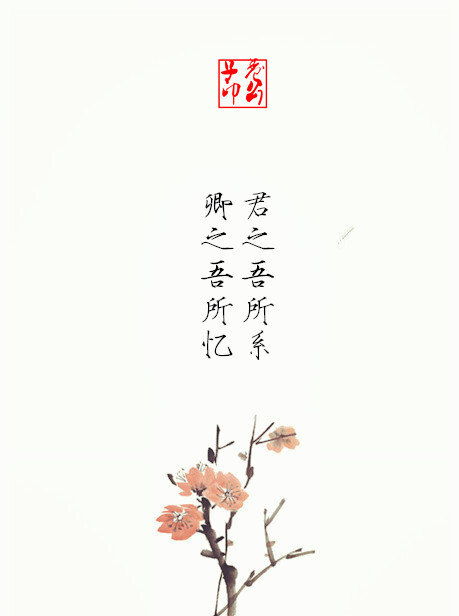 君之吾所系
卿之吾所忆